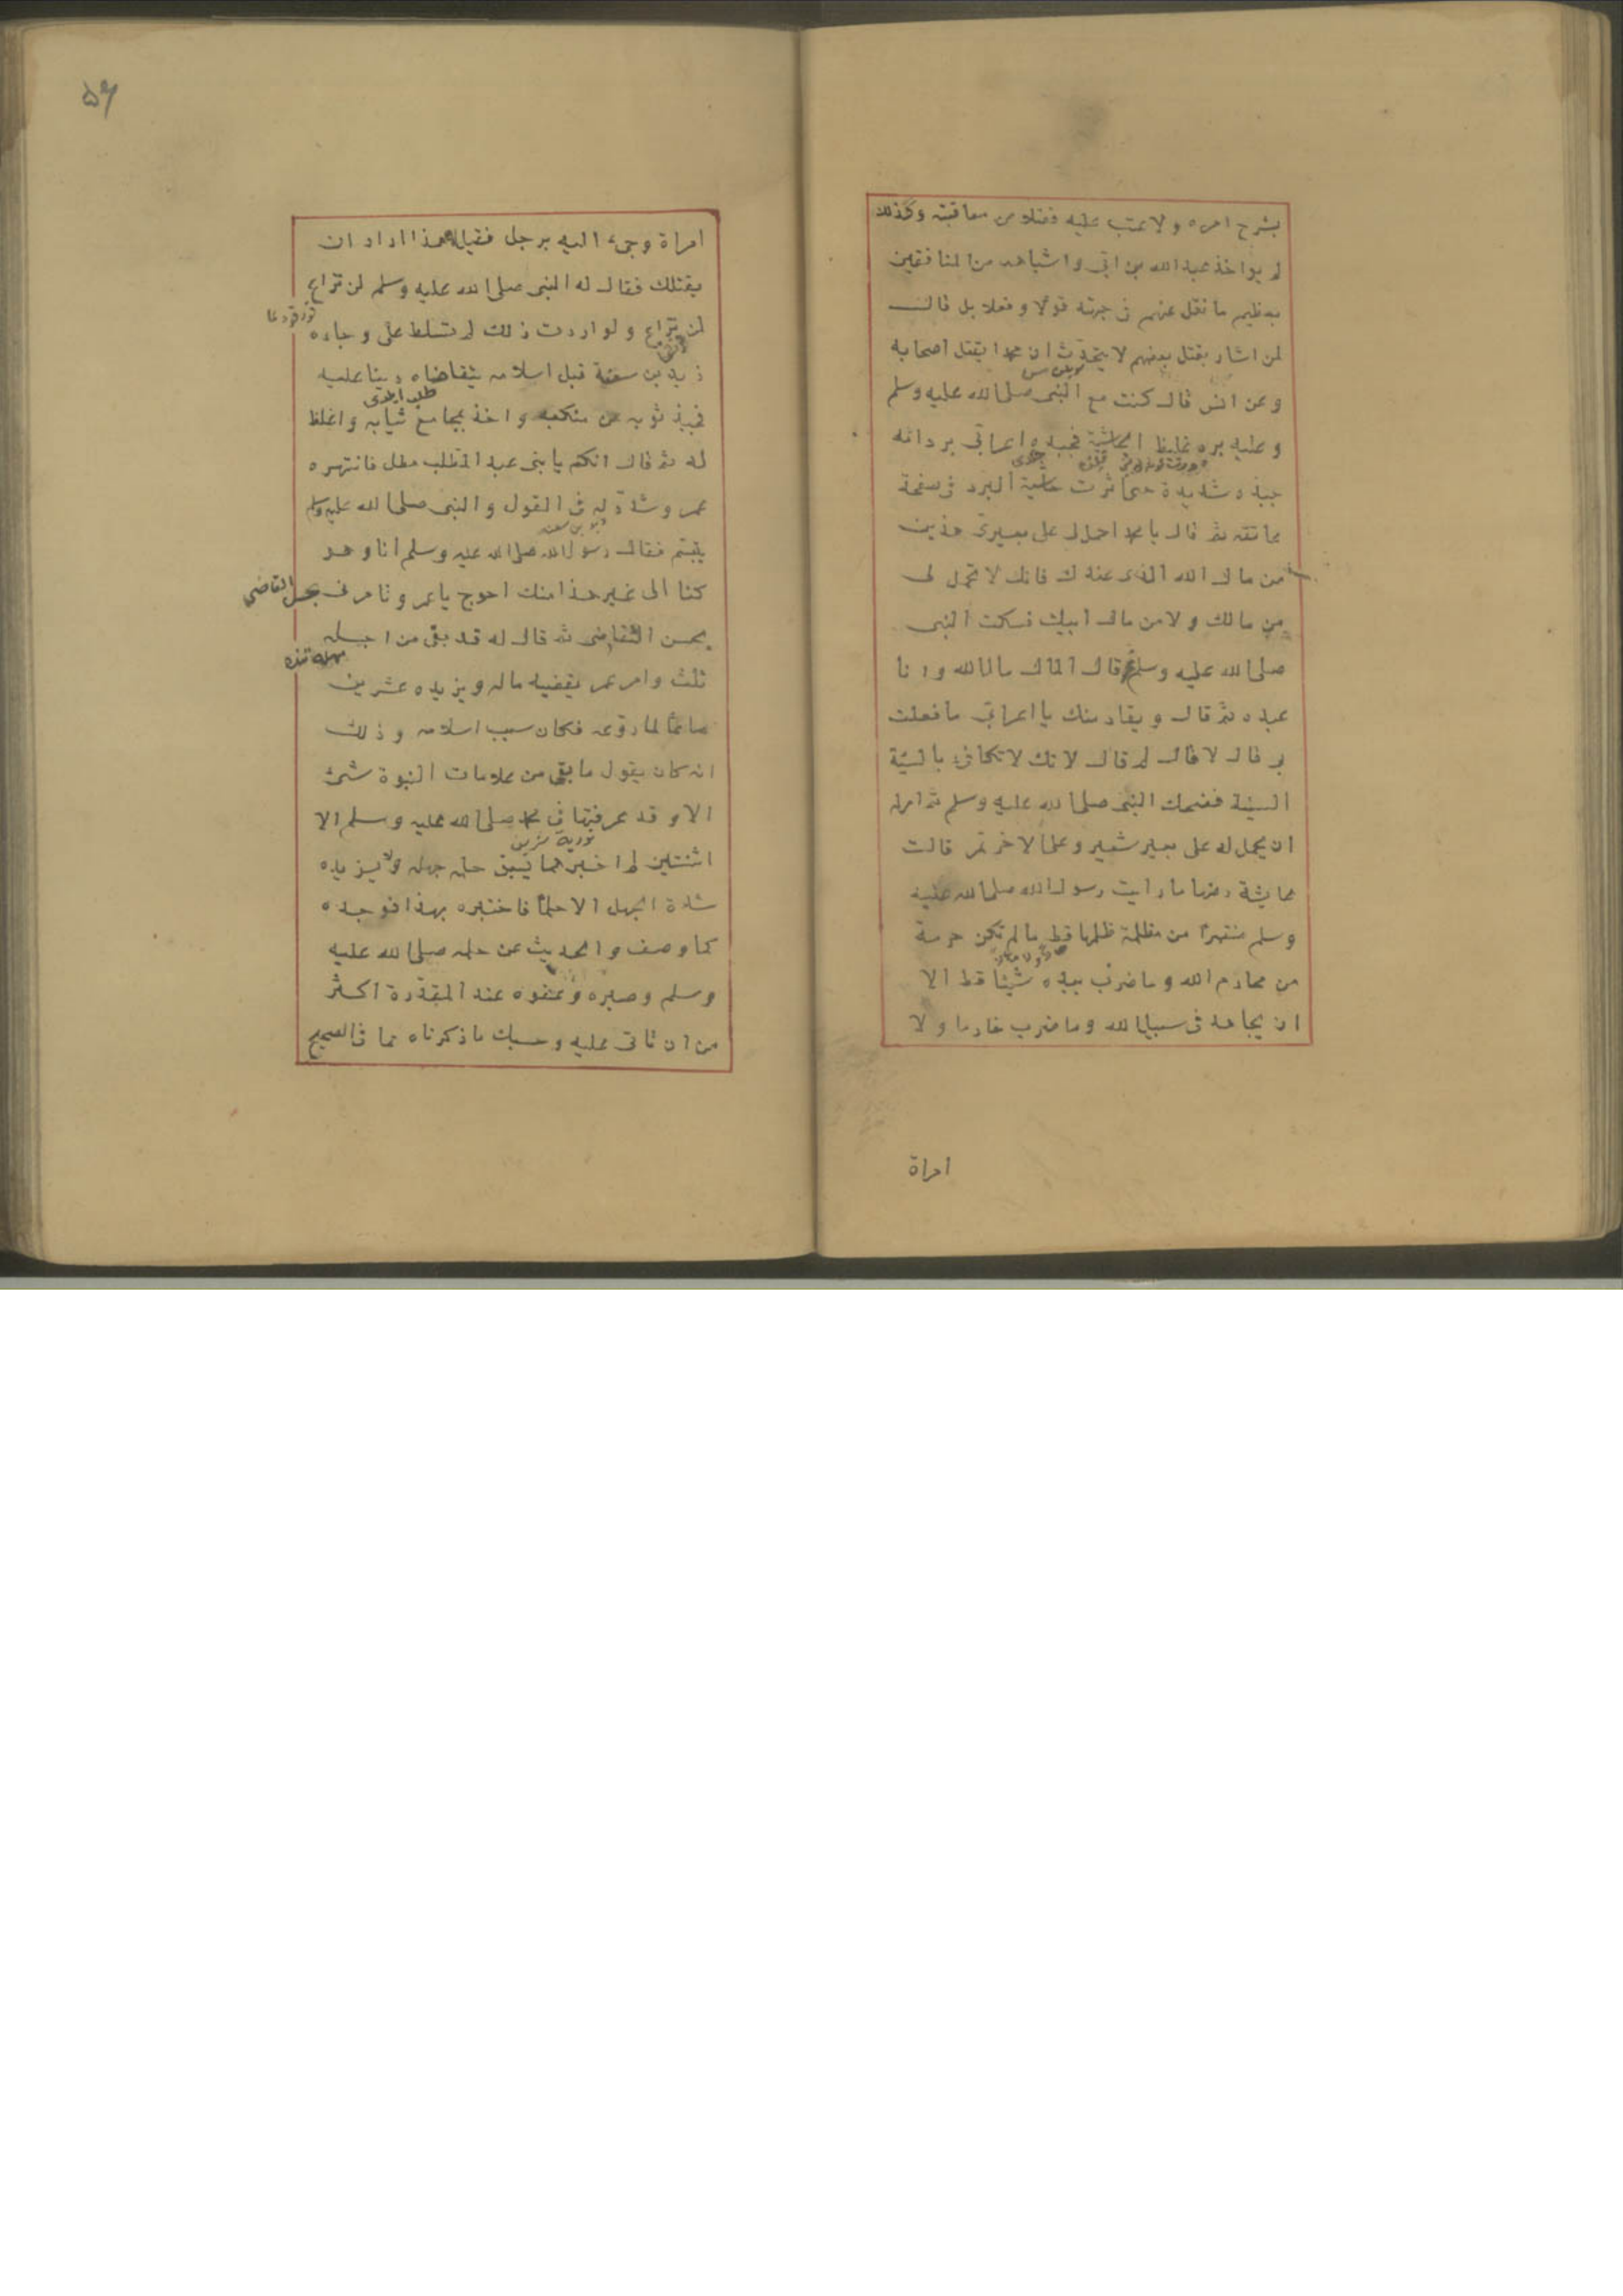 بشرح امره ولا عتب عليه فضلا من معاقبته وكذلك
لم يواخذ عبد الله بن ابى واشباهه من المنافقين
بعظيم ما نقل عنهم فى جهته قولا وفعلا بل قال
لمن اشار بقتل بعضهم لا يتحدث ان محمدا يقتل اصحابه
وعن انس قال كنت مع النبى صلى الله عليه وسلم
وعليه برد غليظ الحاشية فجبذه اعرابى بردائه
جبذة شديدة حتى اثرت حاشية البرد فى صفحة
عاتقه ثم قال يا محمد احمل لى على بعيرى هذين
من مال الله الذى عندك فانك لا تحمل لى
من مالك ولا من مال ابيك فسكت النبى
صلى الله عليه وسلم ثم قال المال مال الله وانا
عبده ثم قال ويقاد منك يا اعرابى ما فعلت
بى قال لا قال لم قال لانك لا تكافئ بالسيئة
السيئة فضحك النبى صلى الله عليه وسلم ثم امر له
ان يحمل له على بعير شعير وعلى الاخر تمر قالت
عايشة رضها ما رايت رسول الله صلى الله عليه
وسلم منتصرا من مظلمة ظلمها قط ما لم تكن حرمة
من محارم الله وما ضرب بيده شيئا قط الا
ان يجاهد فى سبيل الله وما ضرب خادما ولا
امراة
٥٦
امراة وجئ اليه برجل فقيل هذا اراد ان
يقتلك فقال له النبى صلى الله عليه وسلم لن تراع
لن تراع ولو اردت ذلك لم تسلط على وجاءه
زيد بن سعنة قبل اسلامه يتقاضاه دينا عليه
طلب ايلدى
فجبذ ثوبه عن منكبه واخذ بمجامع ثيابه واغلظ
له ثم قال انكم يا بنى عبد المطلب مطل فانتهره
عمر وشدد له فى القول والنبى صلى الله عليه وسلم
زيد بن سعنه
يبتسم فقال رسول الله صلى الله عليه وسلم انا وهو
كنا الى غير هذا منك احوج يا عمر وتامرنى بحسن القضاء
بحسن التقاضى ثم قال له قد بقى من اجله
ثلث وامر عمر يقضيه ماله ويزيده عشرين
صاعا لما روعه فكان سبب اسلامه وذلك
انه كان يقول ما بقى من علامات النبوة شئ
الا وقد عرفتها فى محمد صلى الله عليه وسلم الا
اثنتين لم اخبرهما يسبق حلمه جهله ولا يزيده
شدة الجهل الا حلما فاختبره بهذا فوجده
كما وصف والحديث عن حلمه صلى الله عليه
وسلم وصبره وعفوه عند المقدرة اكثر
من ان تاتى عليه وحسبك ما ذكرناه مما فى الصحيح